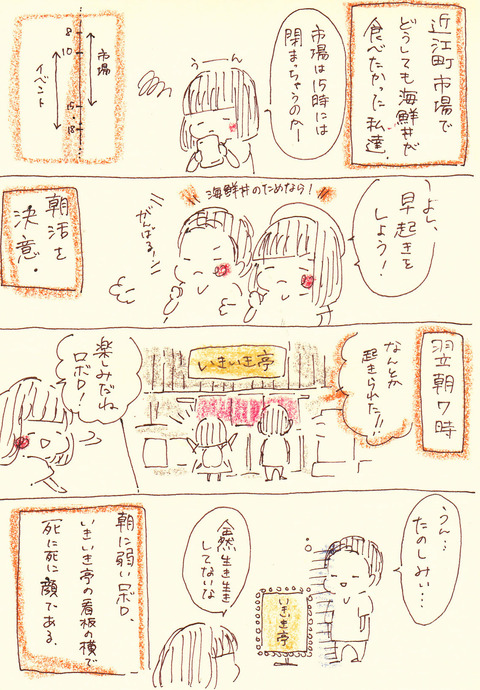 近江町市場で
どうしても海鮮丼が
食べたかった私達。
市場は15時には
閉まっちゃうのかー
うーん
8
10
15
18
市場
イベント
よし、
早起きを
しよう!
海鮮丼のためなら!
がんばる!
朝活を
決意。
翌朝7時
なんとか
起きられた!!
いきいき亭
楽しみだね
ロボロ!
うん…
たのしみぃ…
いきいき亭
全然生き生き
してないな
朝に弱いロボロ、
いきいき亭の看板の横で
死に死に顔である。